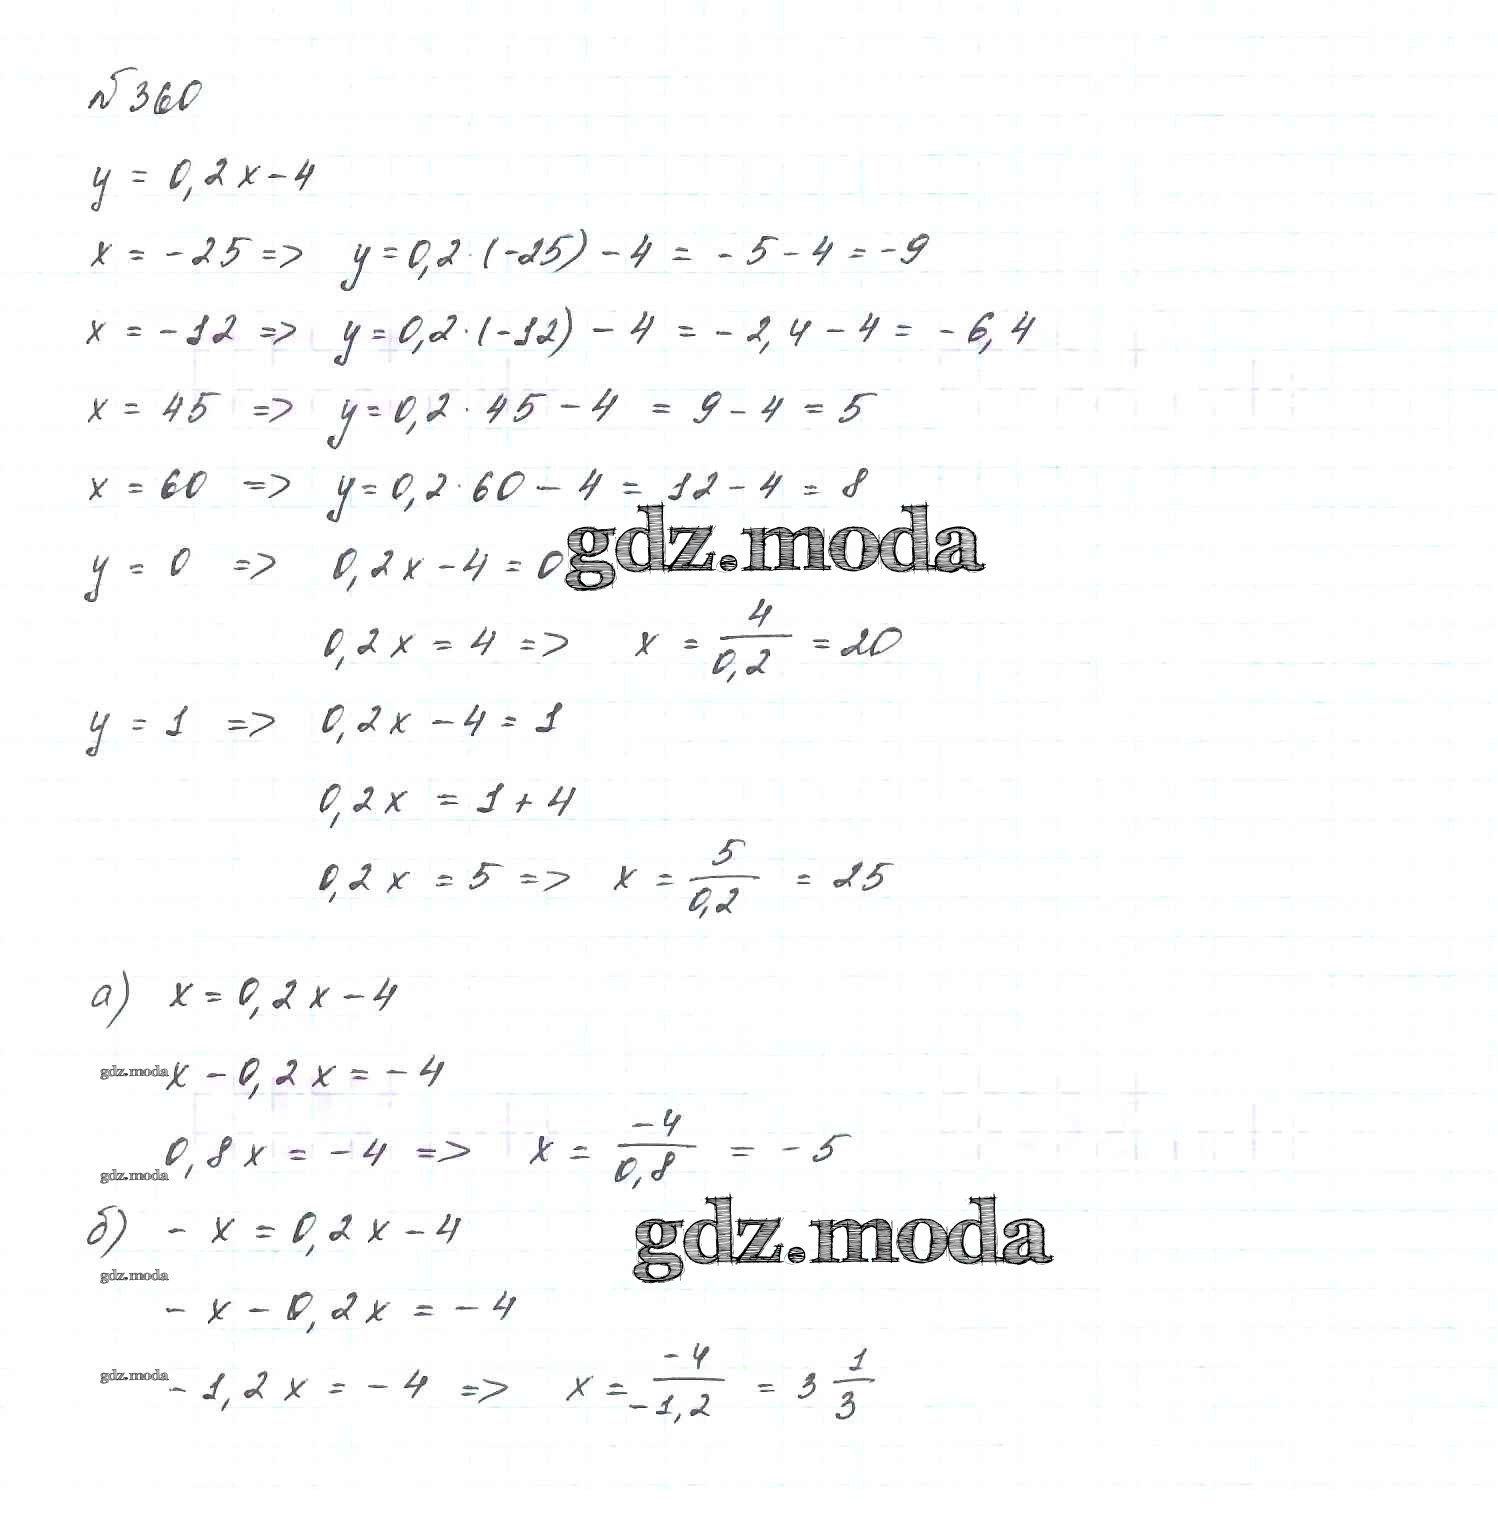 №360
y = 0,2x - 4
x = -25 => y = 0,2 · (-25) - 4 = -5 - 4 = -9
x = -12 => y = 0,2 · (-12) - 4 = -2,4 - 4 = -6,4
x = 45 => y = 0,2 · 45 - 4 = 9 - 4 = 5
x = 60 => y = 0,2 · 60 - 4 = 12 - 4 = 8
gdz.moda
y = 0 => 0,2x - 4 = 0
0,2x = 4 => x = 4/0,2 = 20
y = 1 => 0,2x - 4 = 1
0,2x = 1 + 4
0,2x = 5 => x = 5/0,2 = 25
а) x = 0,2x - 4
gdz.moda
x - 0,2x = -4
0,8x = -4 => x = -4/0,8 = -5
gdz.moda
б) - x = 0,2x - 4
gdz.moda
gdz.moda
- x - 0,2x = -4
gdz.moda
- 1,2x = -4 => x = -4/-1,2 = 3 1/3